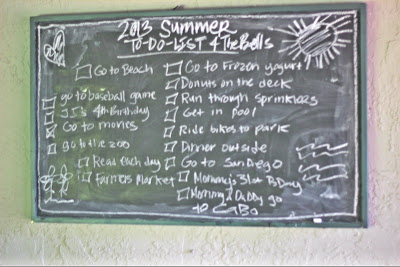 2013 Summer
To-Do-List 4 The Bells
Go to Beach
go to baseball game
JJ's 4th Birthday
Go to movies
go to the zoo
Read each day
Farmers Market
Go to Frozen yogurt
Donuts on the deck
Run through sprinklers
Get in pool
Ride bikes to park
Dinner outside
Go to San Diego
Mommy's 31st BDay
Mommy & Daddy go
to